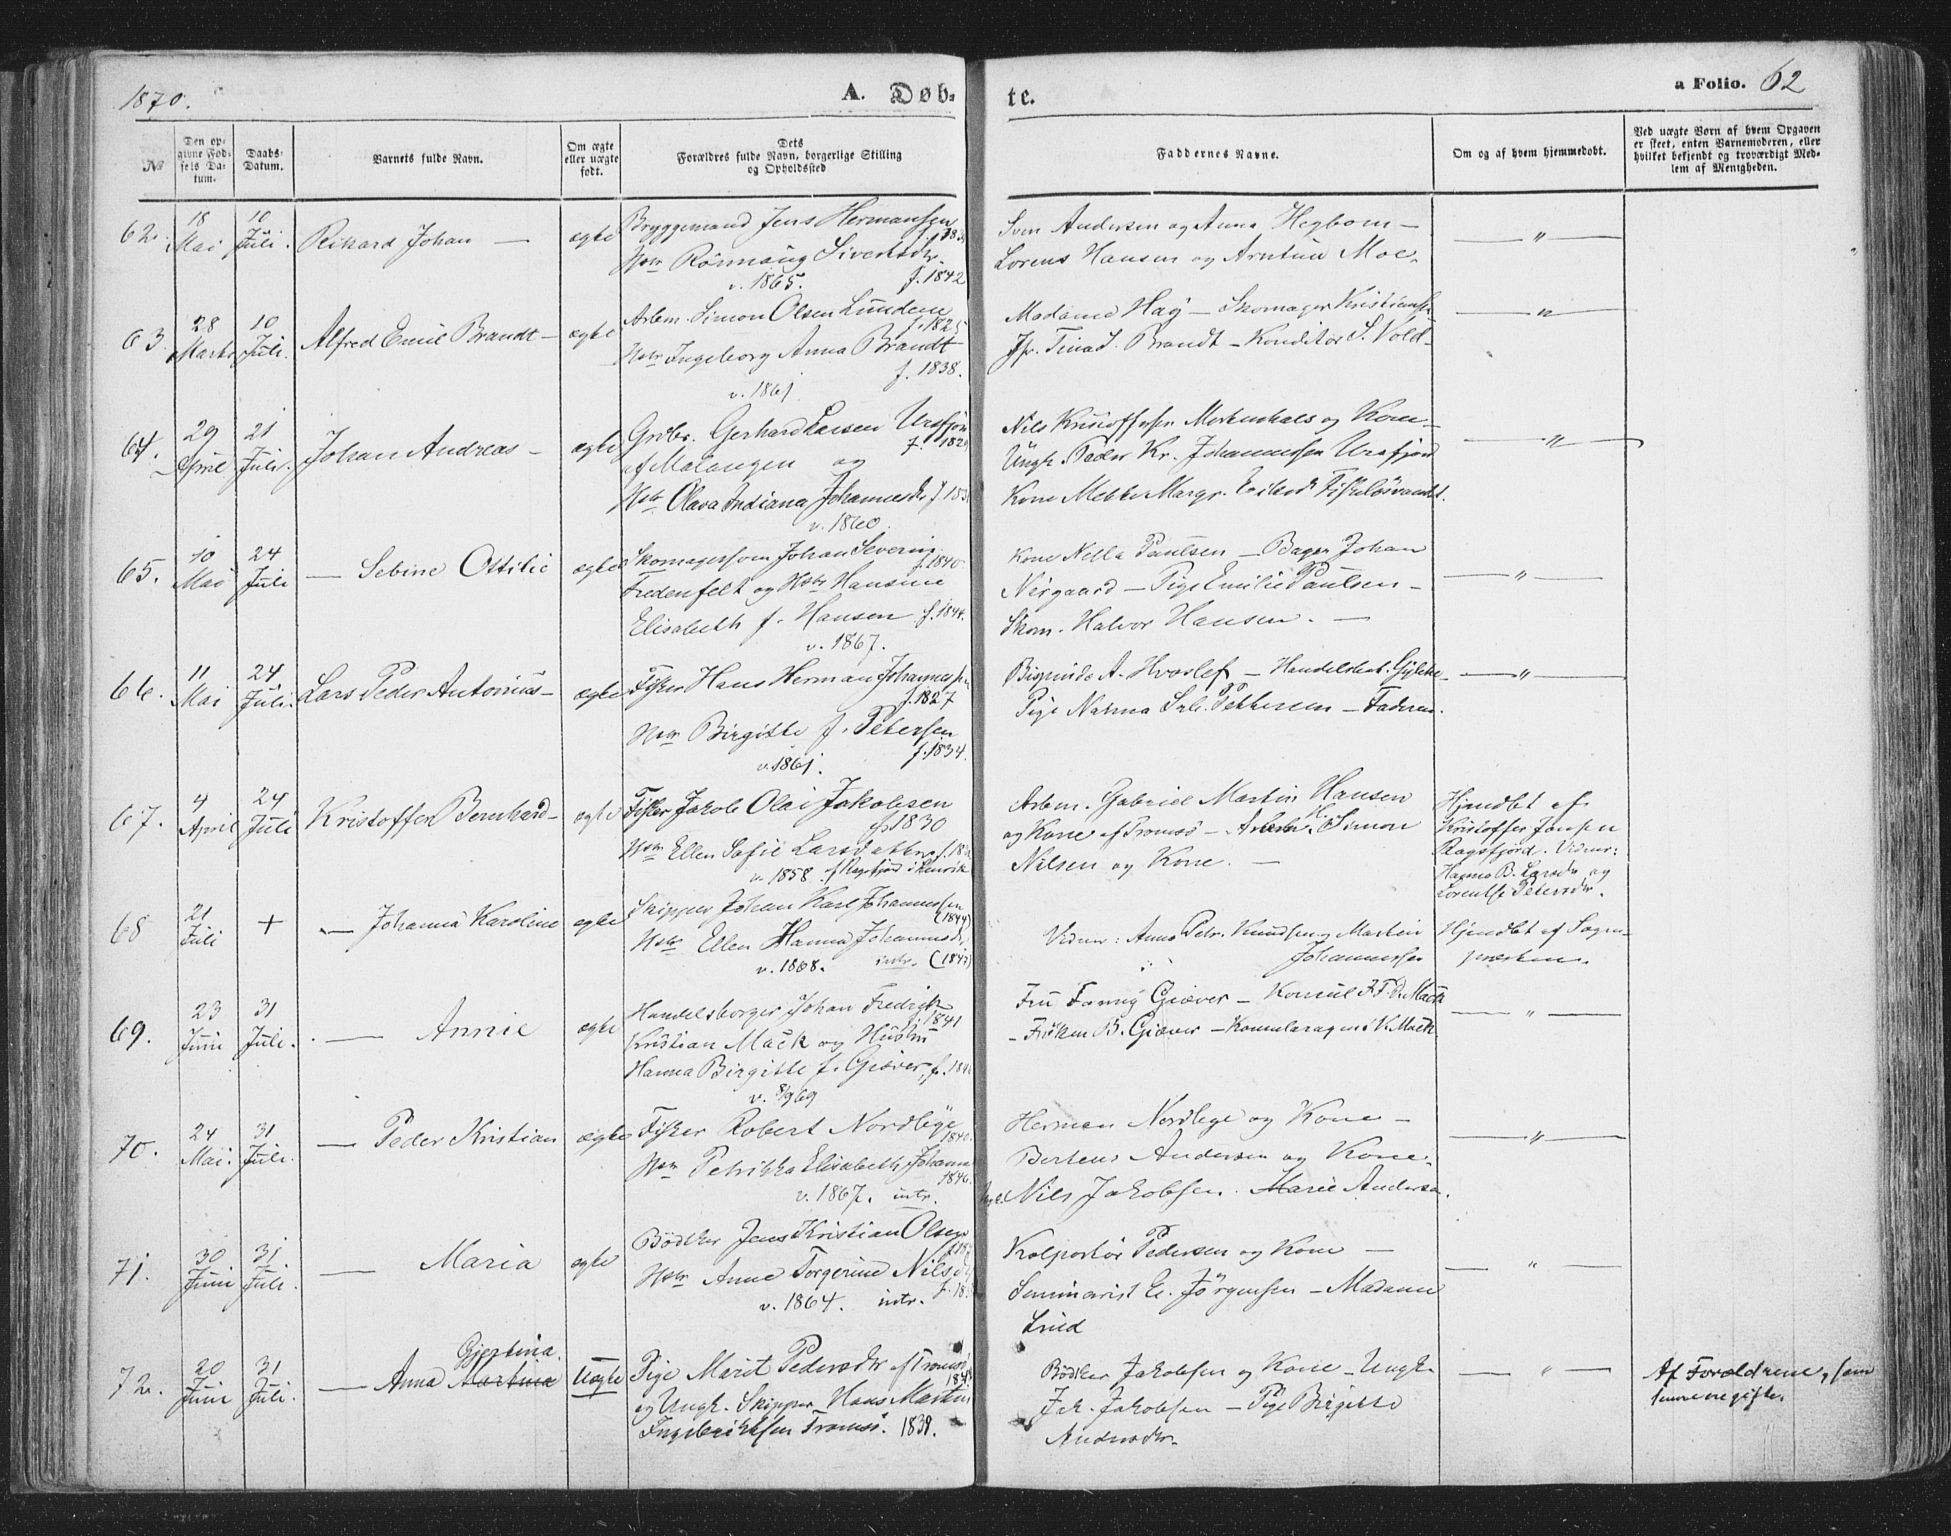 1870.
A. Døb-
te.
a Folio. 62
№
Den op-
givne Fød-
sels Da-
tum.
Daabs-
Datum.
Barnets fulde Navn.
Om ægte
eller uægte
født.
Dets
Forældres fulde Navn, borgerlige Stilling
og Opholdssted
Faddernes Navne.
Om og af hvem hjemmedøbt.
Ved uægte Børn af hvem Opgaven
er skeet, enten Barnemoderen, eller
hvilket bekjendt og troværdigt Med-
lem af Menigheden.
62.
18
Mai
10
Juli.
Rikard Johan —
ægte
Bryggemand Jens Hermansen
Hstr Rönnaug Sivertsdtr.
v. 1865. f. 1842
Sven Andersen og Anna Hegbom —
Lorens Hansen og Arntine Moe.
— " —
63.
28
Marts
10
Juli.
Alfred Emil Brandt —
ægte
Arbm. Simon Olsen Lundene
f. 1825
Hstr Ingeborg Anna Brandt
f. 1838.
v. 1861
Madame Hay — Skomager Kristiansen
Jfr. Tina J. Brandt — Konditor S. Vold —
— " —
64.
29
April
21
Juli.
Johan Andreas —
ægte
Grdbr. Gerhard Larsen Ursfjord
af Malangen og
Hstr Olava Andiana Johannesdr
v. 1860.
Nils Kristoffersen Merkenhals og Kone —
Ungk. Peder Kr. Johannessen Ursfjord
Kone Mekke Margr.
— " —
65.
10
Mai
24
Juli
— Sebine Ottilie
ægte
Skomagersvn Johan Severin
f. 1840
Fredenfelt og Hstr Hansine
Elisabeth f. Hansen f. 1844.
v. 1867.
Kone Nella Paulsen — Bager Johan
Nergaard — Pige Emilie Paulsen —
Skom. Halvor Hansen. —
— " —
66.
11
Mai
24
Juli.
Lars Peder Antonius —
ægte
Fisker Hans Herman Johannessen
f. 1827
Hstr Birgitte f. Petersen
f. 1834.
v. 1861.
A. Hvoslef — Handelsbet.
Pige Nanna Pettersen — Faderen.
— " —
67.
4
April
24
Juli
Kristoffer Bernhard —
ægte
Fisker Jakob Olai Jakobsen
f. 1830
Hstr Ellen Sofie Larsdatter
v. 1858.
Arbm. Gabriel Martin Hansen
og Kone af Tromsö — Simon
Nilsen og Kone. —
Hjmdbt af
Kristoffer Jansen
Ragsfjord. Vidner:
Hanna B. Larsdr og
Lorentse Petersdr.
68
21
Juli
+
— Johanna Karoline
ægte
Skipper Johan Karl Johannessen
(1844)
Hstr Ellen Hanna Johannesdr.
v. 1868. intr. (1843)
Vidner: Anne Petr. Knudsen og Martin
Johannessen
Hjmdbt af Sogne-
præsten.
69.
23
Juni
31
Juli.
— Annie
ægte
Handelsborger Johan Fredrik
f. 1841
Kristian Mack og Hustru
Hanna Birgitte f. Giæver,
v. 8/9 69
Fru Fanny Giæver — Konsul Mack
— Fröken B. Giæver — Mack
— " —
70.
24
Mai.
31
Juli.
— Peder Kristian
ægte
Fisker Robert Nordlege
1840
Hstr Petrikka Elisabeth
1846.
v. 1867. intr.
Herman Nordlege og Kone —
Berteus Andersen og Kone.
Nils Jakobsen. Marie Andersen.
— " —
71.
30
Juni
31
Juli.
— Maria
ægte
Bödker Jens Kristian Olsen
Hstr Anne Torgerine
v. 1864. intr.
Kolportör Pedersen og Kone —
Seminarist E. Jörgensen — Madame
Lund
— " —
72.
20
Juni
31
Juli.
Gjertina.
— Anna Martina
Uægte
Pige Marit Pedersdtr af Tromsö
og Ungk. Skipper Hans Martin
Ingebrigtsen Tromsö. 1838.
Bödker Jakobsen og Kone — Ungk.
Jak. Jakobsen — Pige Birgitte
Andersdtr.
— " —
Af Forældrene, som
senere ere gifte.